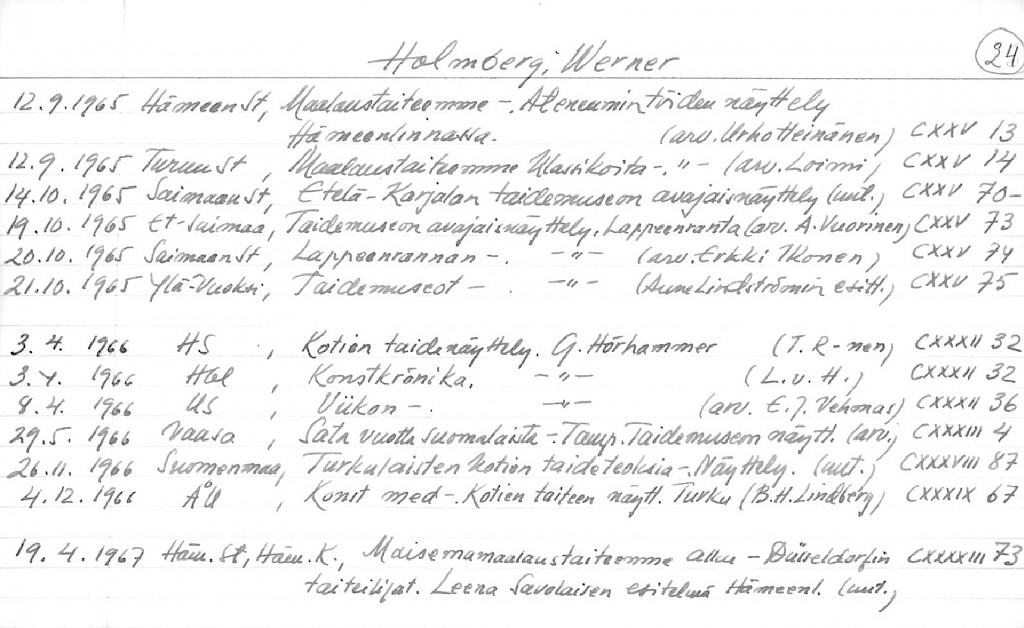 24
Holmberg, Werner
12.9.1965 HämeenSt, Maalaustaiteemme -. Ateneumin töiden näyttely
Hämeenlinnassa. (arv. Urho Heinänen) CXXV 13
12.9.1965 TurunSt, Maalaustaiteemme klassikoita -. " - (arv. Loimi, CXXV 14
14.10.1965 SaimaanSt, Etelä-Karjalan taidemuseon avajaisnäyttely (uut.) CXXV 70-
19.10.1965 Et-Saimaa, Taidemuseon avajaisnäyttely. Lappeenranta (arv. A. Vuorinen) CXXV 73
20.10.1965 SaimaanSt, Lappeenrannan -. - " - (arv. Erkki Ikonen) CXXV 74
21.10.1965 Ylä-Vuoksi, Taidemuseot - . - " - (Aune Lindströmin esitt.) CXXV 75
3.4. 1966 HS , Kotien taidenäyttely. G. Hörhammer (T. R-nen) CXXXII 32
3.4. 1966 Hbl , Konstkrönika. - " - (L.v.H.) CXXXII 32
8.4. 1966 US , Viikon -. - " - (arv. E.J. Vehmas) CXXXII 36
29.5. 1966 Vaasa , Sata vuotta suomalaista -. Tamp. Taidemuseon näytt. (arv.) CXXXIII 4
26.11. 1966 Suomenmaa, Turkulaisten kotien taideteoksia -. Näyttely. (uut.) CXXXVIII 87
4.12. 1966 ÅU , Konst med -. Kotien taiteen näytt. Turku (B.H. Lindberg) CXXXIX 67
19.4.1967 Häm. St, Häm. K., Maisemamaalaustaiteemme alku - Düsseldorfin CXXXXIII 73
taiteilijat. Leena Savolaisen esitelmä Hämeenl. (uut.,